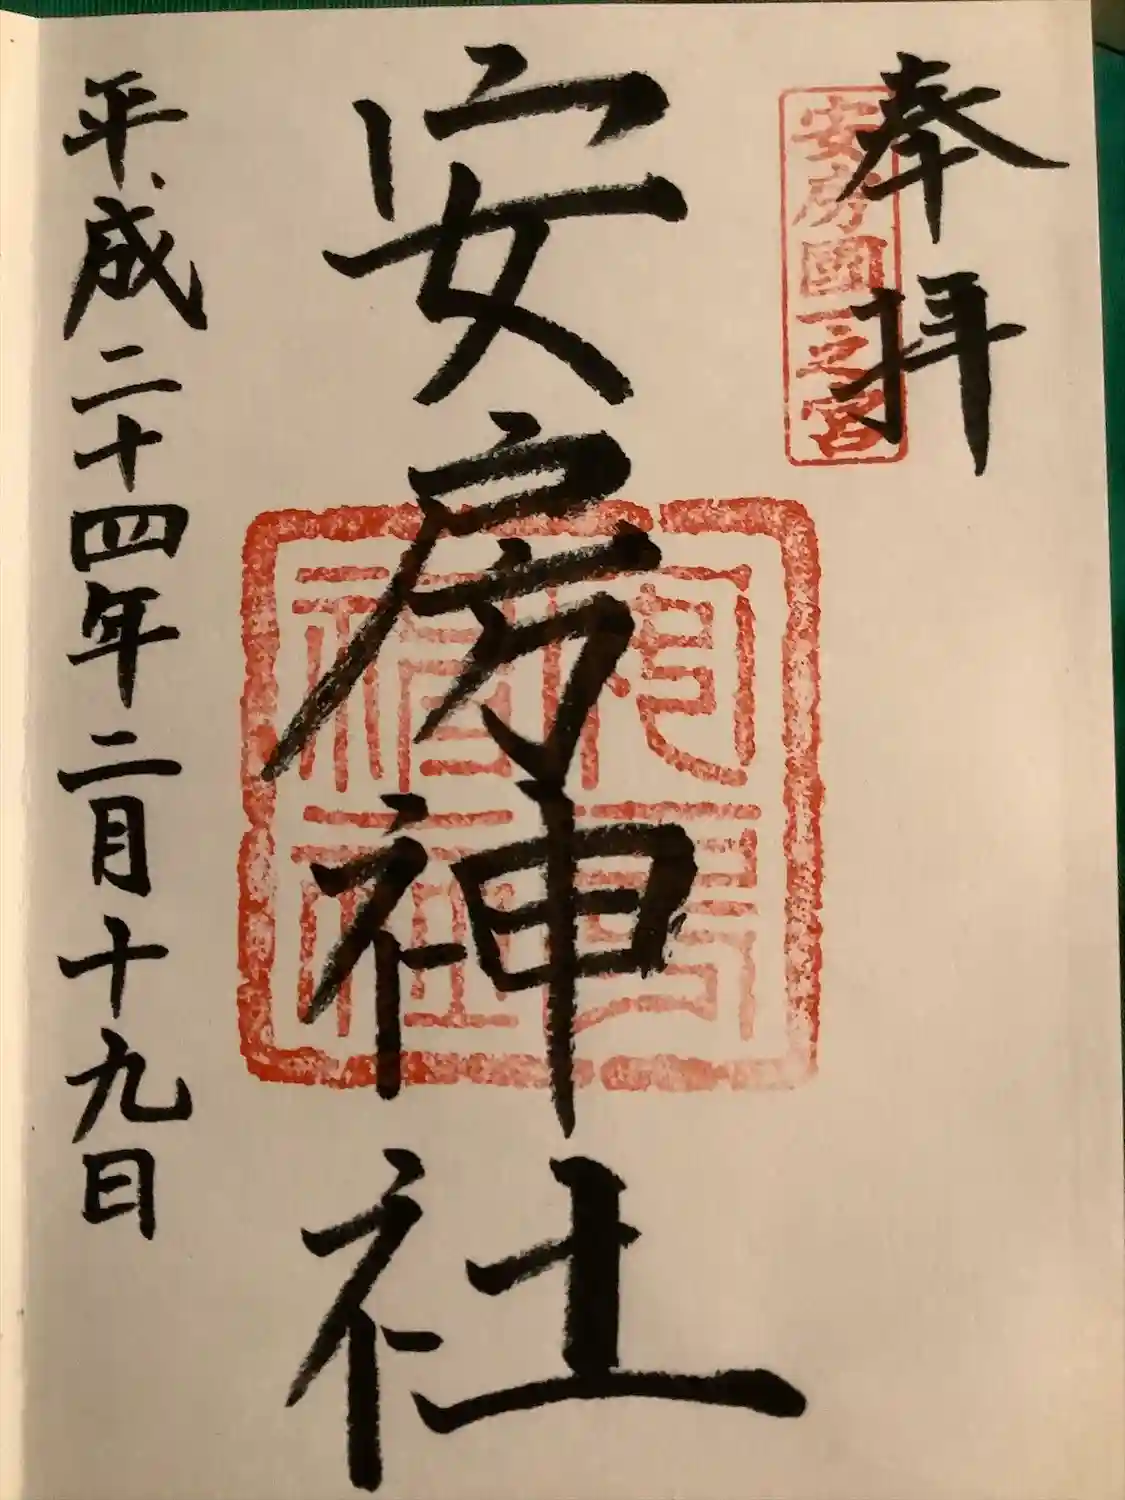 奉拝
安房國一之宮
安房神社
平成二十四年二月十九日